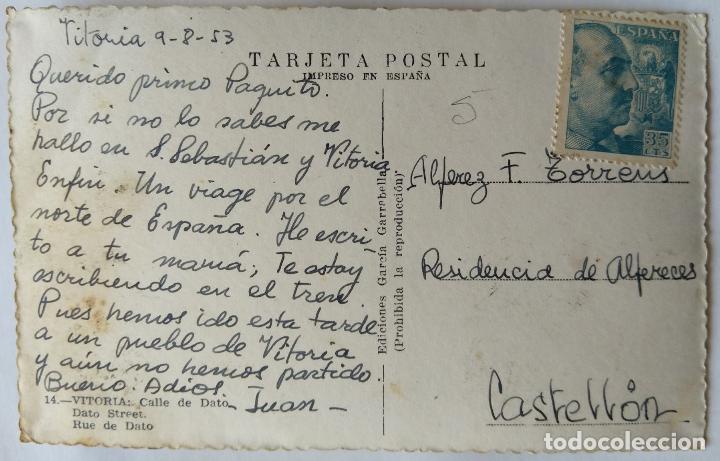 Vitoria 9-8-53
TARJETA POSTAL
IMPRESO EN ESPAÑA
Querido primo Paquito.
Por si no lo sabes me
hallo en S. Sebastián y Vitoria
Enfin. Un viage por el
norte de España. He escri-
to a tu mamá; Te estoy
escribiendo en el tren.
Pues hemos ido esta tarde
a un pueblo de Vitoria
y aún no hemos partido.
Bueno. Adios.
- Juan -
14.—VITORIA: Calle de Dato
Dato Street.
Rue de Dato
Ediciones García Garrabella
(Prohibida la reproducción)
5
ESPAÑA
35
CTS
Alferez F. Torrens
Residencia de Alfereces
Castellón
todocoleccion.net